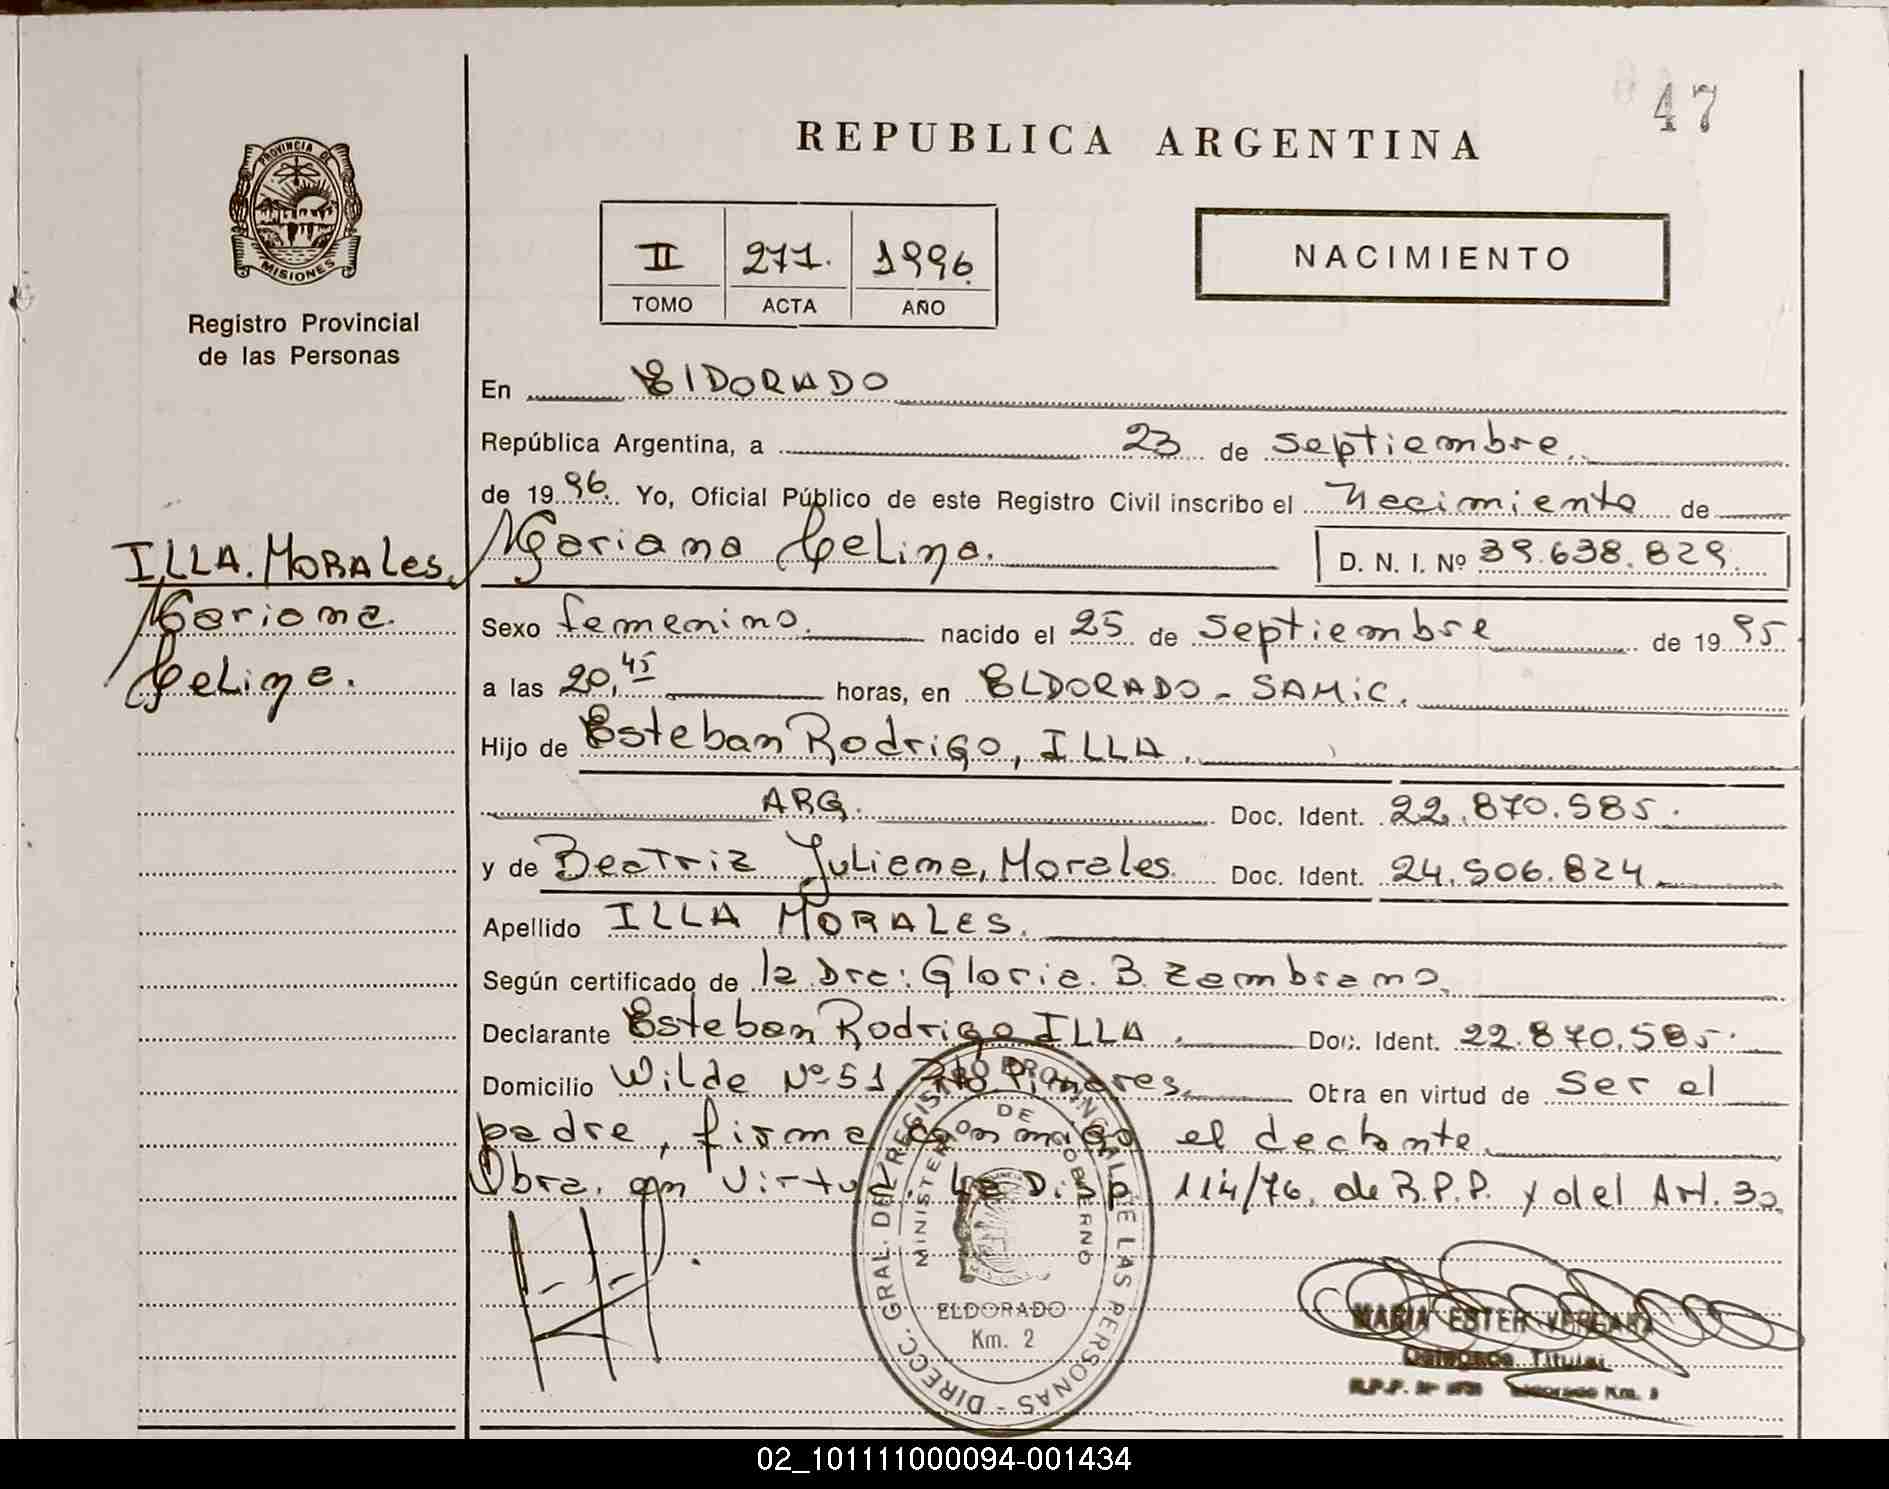 47
REPUBLICA ARGENTINA
PROVINCIA DE
MISIONES
Registro Provincial
de las Personas
II 271. 1996.
TOMO ACTA AÑO
NACIMIENTO
En ElDORADO
República Argentina, a 23 de septiembre.
de 1996. Yo, Oficial Público de este Registro Civil inscribo el Nacimiento de
ILLA. MORALES.
Mariana
Celina.
Mariana Celina. D. N. I. Nº 39.638.829.
Sexo femenino. nacido el 25 de septiembre de 1995
a las 20,45 horas, en ELDORADO - SAMIC.
Hijo de Esteban Rodrigo, ILLA.
ARG. Doc. Ident. 22.870.585.
y de Beatriz Juliana, Morales Doc. Ident. 24.506.824
Apellido ILLA MORALES.
Según certificado de la Dra: Gloria. B. Zambrano.
Declarante Esteban Rodrigo ILLA. Doc. Ident. 22.870.585.
Domicilio Wilde Nº 51 Bº Pinares. Obra en virtud de ser el
padre, firma con migo el declante.
Obra. en virtud. la Disp 114/76. de R.P.P. y del Art. 30
DIRECC. GRAL. DEL REGISTRO PROVINCIAL DE LAS PERSONAS
MINISTERIO DE GOBIERNO
ELDORADO
Km. 2
MARIA ESTER VERGARA
Delegada Titular
R.P.P. Eldorado Km. 2
02_101111000094-001434